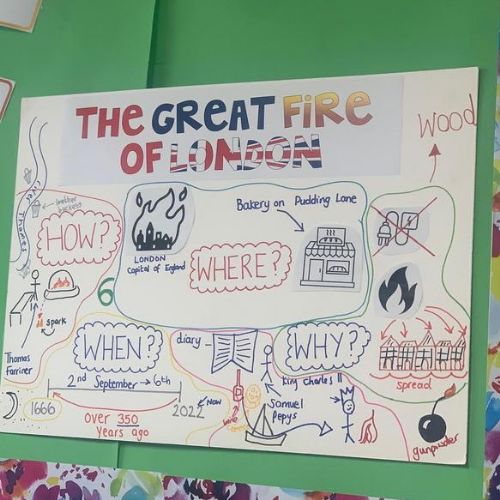 THE GREAT FIRE
OF LONDON
Wood
River Thames
leather
buckets
HOW?
spark
Thomas
Farriner
6
LONDON
Capital of England
WHERE?
Bakery on Pudding Lane
WHEN?
2nd September → 6th
1666
2022
Now
over 350
Years ago
diary
WHY?
King Charles II
Samuel
Pepys
wine
spread
gunpowder